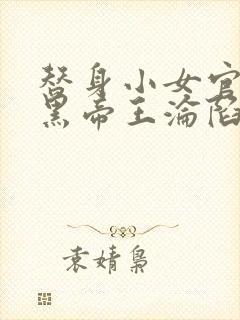 替身小女官
黑帝王淪陷
袁婧梟